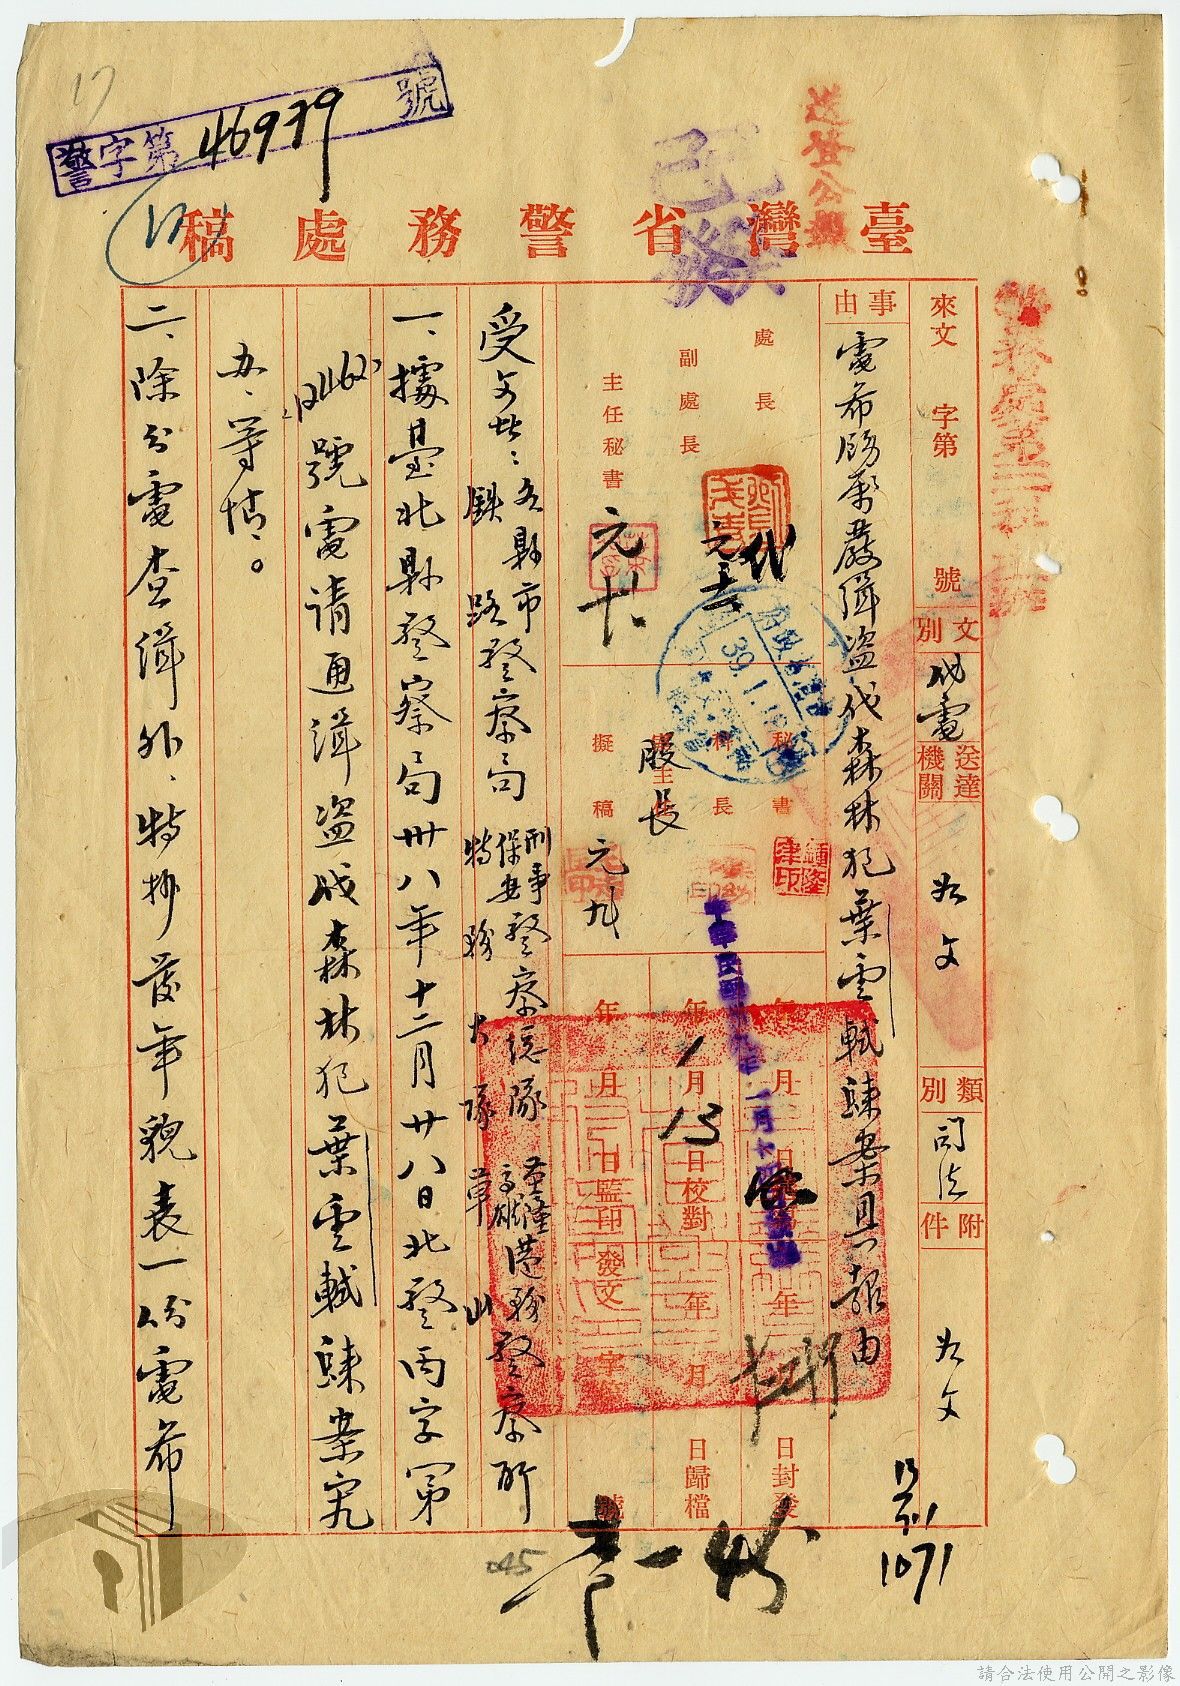 警字第46979號
臺灣省警務處稿
送登公報
已繕
來文 字第 號
文別 代電
送達機關 如文
類別 司法
附件 如文
事由
電希協緝嚴緝盜伐森林犯葉雲軾疎案具報由
處長
副處長
主任秘書
秘書
科長
股長
擬稿
元九
代
39.1.
年 月 日監印
1月13日校對
年 月 日歸檔
日封發
發文 字 號
受文者：各縣市警察局 刑事 保安警察總隊 基隆 高雄港務警察所
鐵路 特務大隊 草山
一、據臺北縣警察局卅八年十二月廿八日北警丙字第
號電請通緝盜伐森林犯葉雲軾疎案究
办、等情：。
二、除分電查緝外、特抄發年貌表一份電希
1071
045
17
請合法使用公開之影像